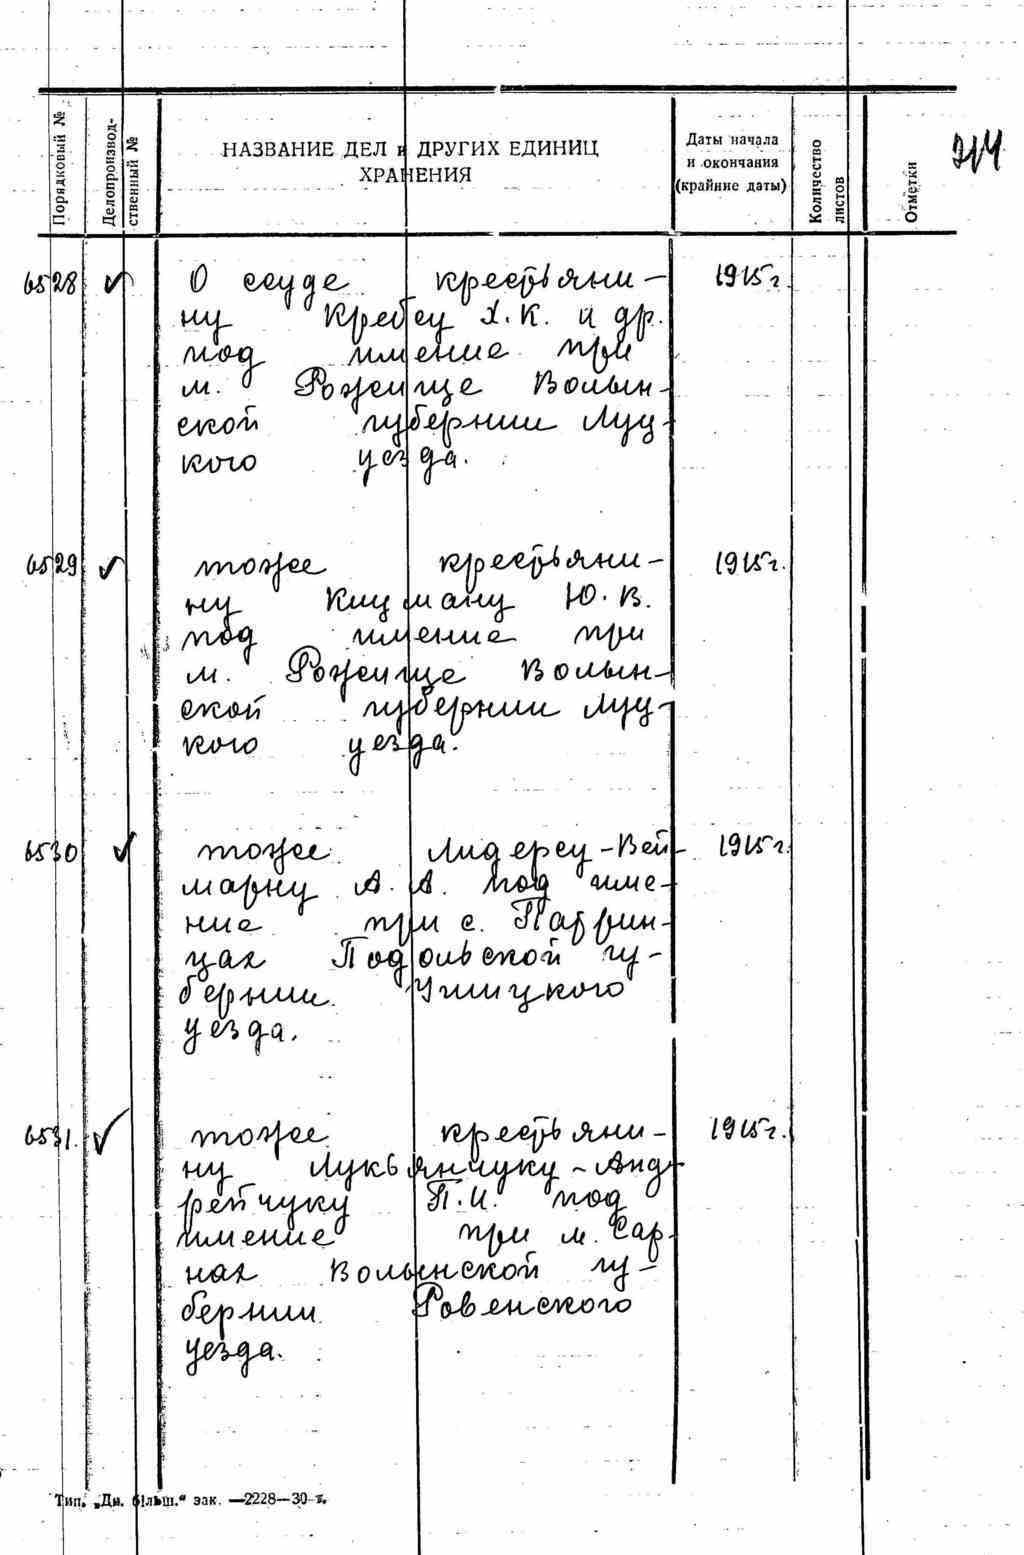 314
Порядковый №
Делопроизвод-
ственный №
НАЗВАНИЕ ДЕЛ и ДРУГИХ ЕДИНИЦ
ХРАНЕНИЯ
Даты начала
и окончания
(крайние даты)
Количество
листов
Отметки
6528 ✓ О ссуде крестьяни- 1915 г.
ну Кребсу Х.К. и др.
под имение при
м. Рожище Волын-
ской губернии Луц-
кого уезда.
6529 ✓ тоже крестьяни- 1915 г.
ну Кицману Ю.В.
под имение при
м. Рожище Волын-
ской губернии Луц-
кого уезда.
6530 ✓ тоже Лидерсу-Вей- 1915 г.
марну А.А. под име-
ние при с.
цах Подольской гу-
бернии Ушицкого
уезда.
6531. ✓ тоже крестьяни- 1915 г.
ну Лукьянчуку-Анд-
рейчуку П.И. под
имение при м. Сар-
нах Волынской гу-
бернии Ровенского
уезда.
Тип. „Дн. більш.“ зак. —2228—30 т.